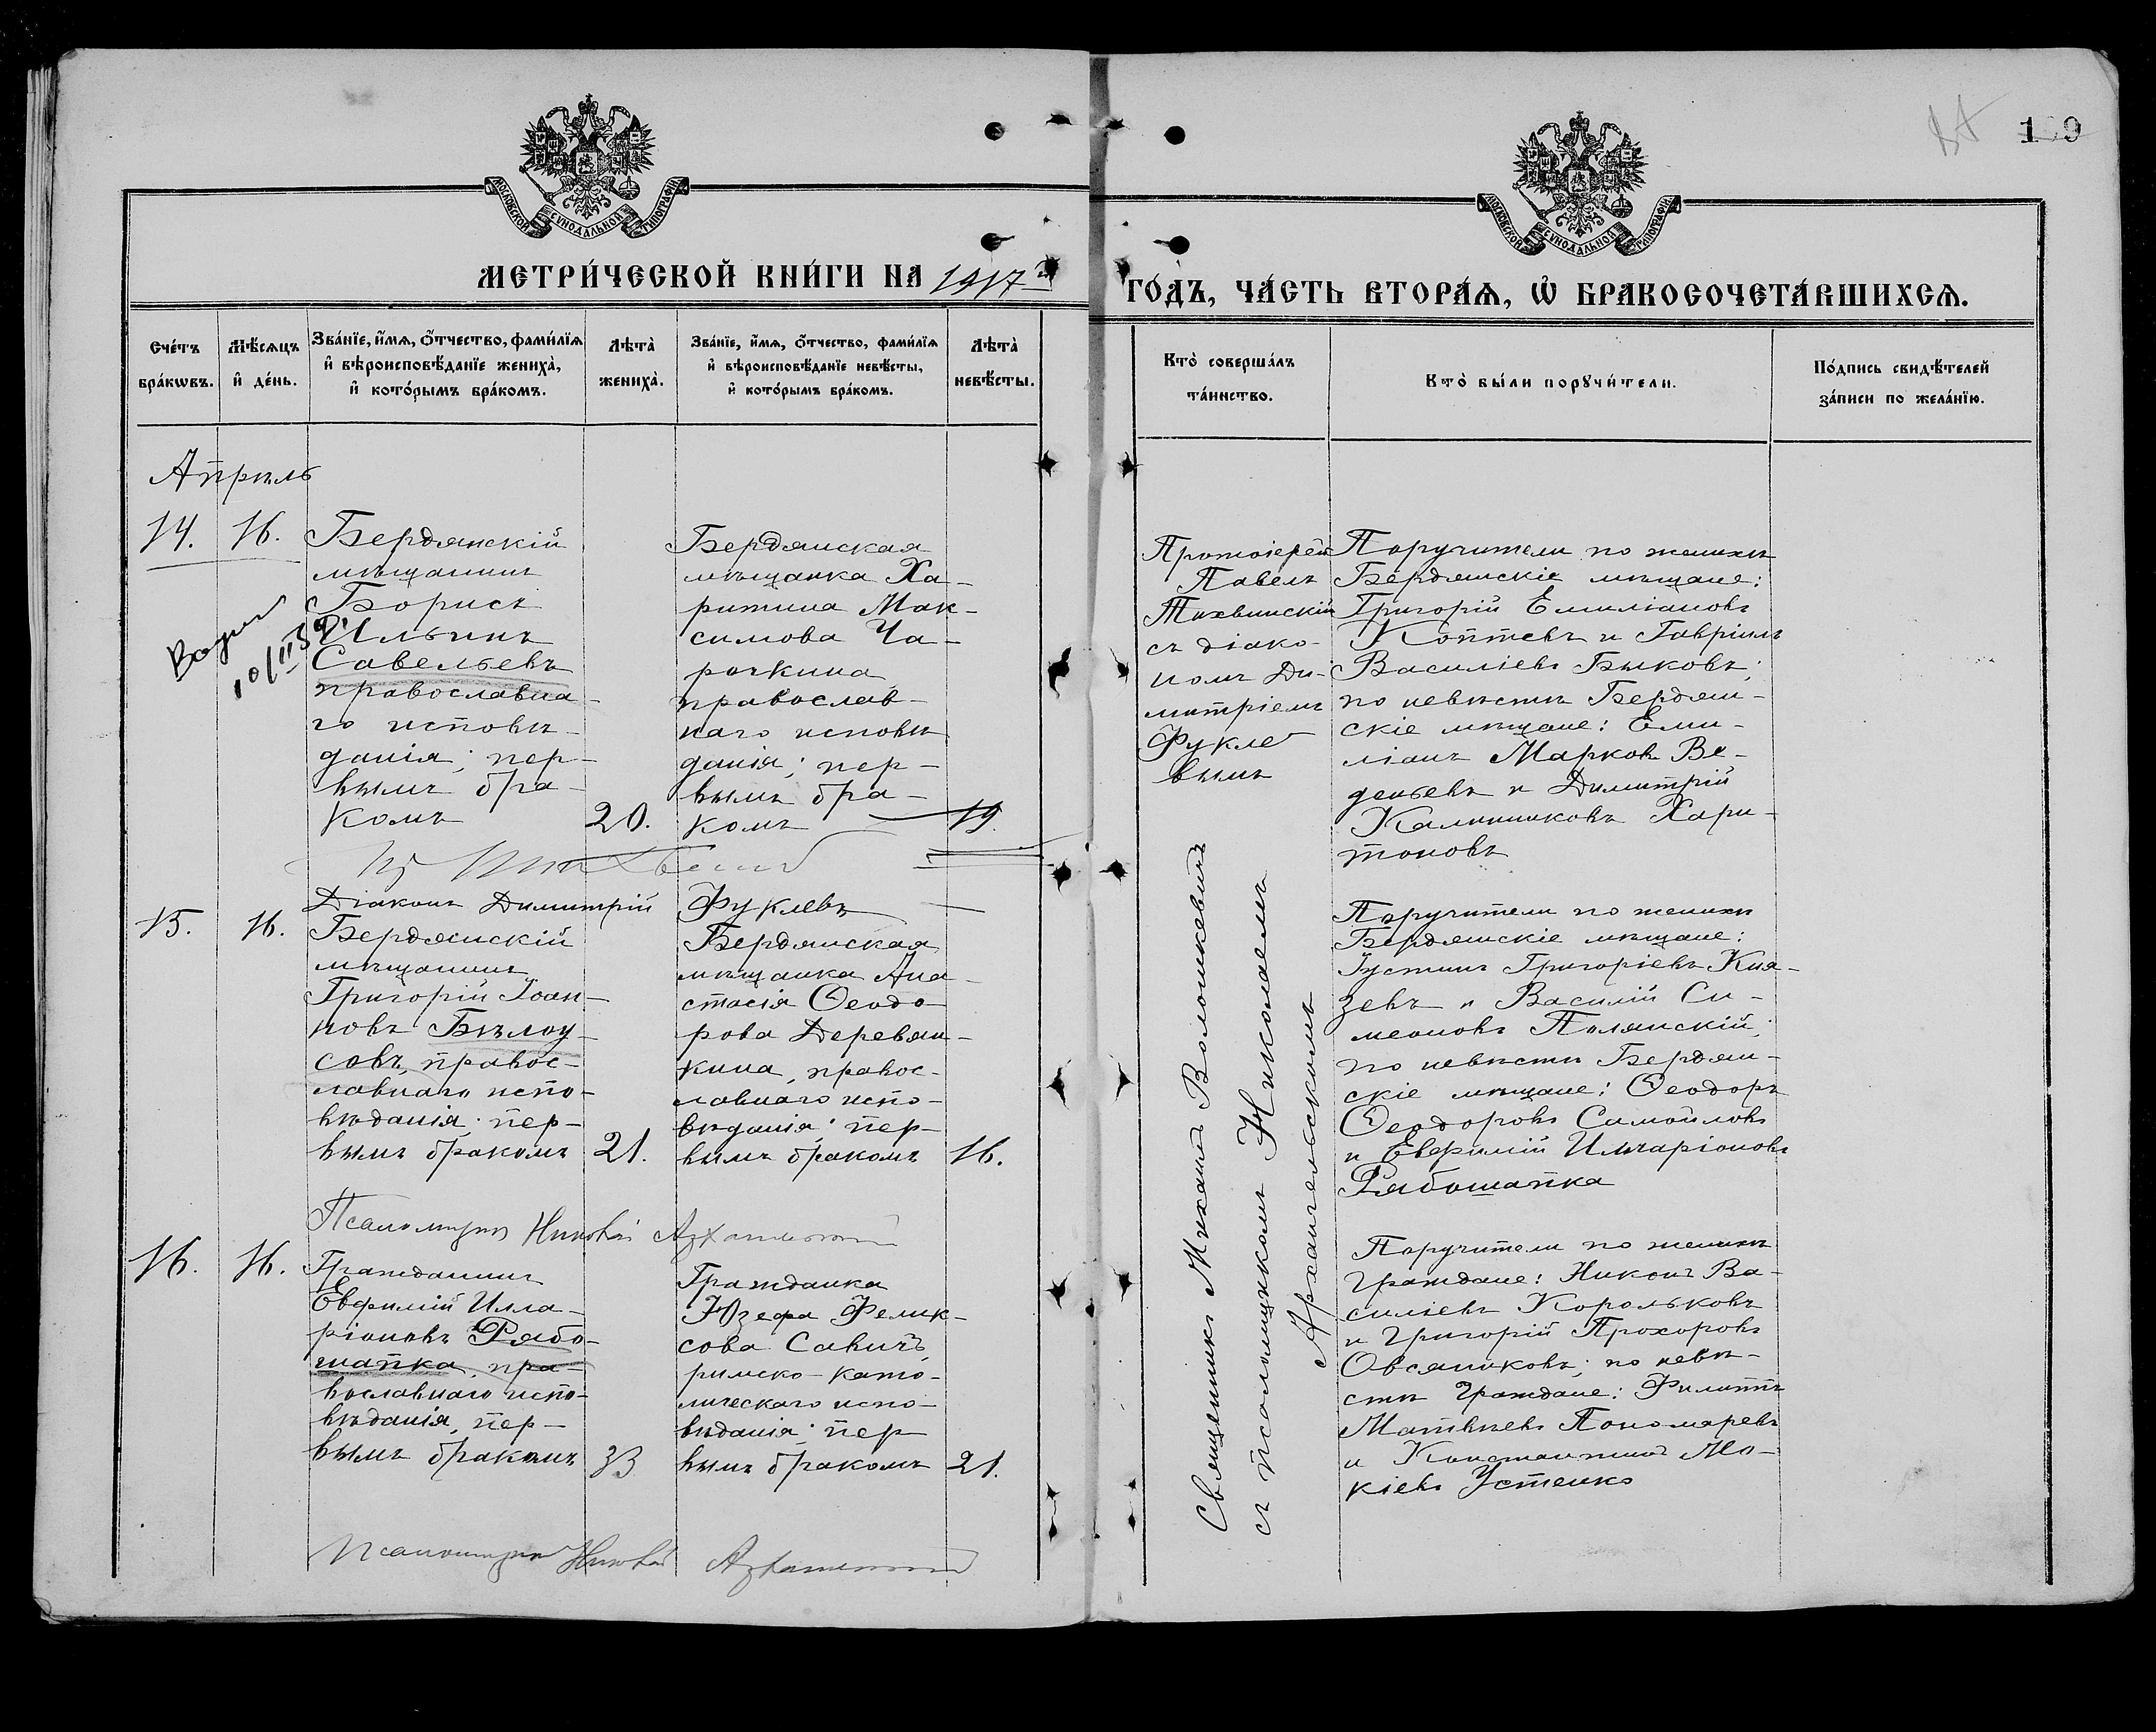 139
МОСКОВСКОЙ СѴНОДАЛЬНОЙ ТИПОГРАФІИ
МОСКОВСКОЙ СѴНОДАЛЬНОЙ ТИПОГРАФІИ
МЕТРИ́ЧЕСКОЙ КНИ́ГИ НА 1917 г
ГО́ДЪ, ЧА́СТЬ ВТОРА́Ѧ, Ѡ҆ БРАКОСОЧЕТА́ВШИХСѦ.
Сче́тъ
бра́кѡвъ.
Мѣ́сѧцъ
и҆ де́нь.
Зва́нїе, и҆́мѧ, ѻ҆́тчество, фами́лїѧ
и҆ вѣроисповѣ́данїе жениха̀,
и҆ кото́рымъ бра́комъ.
Лѣта̀
жениха̀.
Зва́нїе, и҆́мѧ, ѻ҆́тчество, фами́лїѧ
и҆ вѣроисповѣ́данїе невѣ́сты,
и҆ кото́рымъ бра́комъ.
Лѣта̀
невѣ́сты.
Кто̀ соверша́лъ
та́инство.
Кто̀ бы́ли порꙋчи́тели.
По́дпись свидѣ́телей
за́писи по жела́нїю.
Апрѣль
14.
16.
Бердянскій
мѣщанинъ
Борисъ
Ильинъ
Савельевъ
православна-
го исповѣ-
данія; пер-
вымъ бра-
комъ
20.
Бердянская
мѣщанка Ха-
ритина Мак-
симова Ча-
рочкина
православ-
наго исповѣ
данія; пер-
вымъ бра-
комъ
19.
Протоіерей
Павелъ
Тихвинскій
съ діако-
номъ Ди-
митріемъ
Фукле
вымъ
Поручители по женихѣ
Бердянскіе мѣщане:
Григорій Емиліановъ
Коптевъ и Гавріилъ
Василіевъ Быковъ;
по невѣстѣ Бердян-
скіе мѣщане: Еми-
ліанъ Марковъ Ве-
деньевъ и Димитрій
Калинниковъ Хари-
тоновъ
10/II 39
Діаконъ Димитрій Фуклевъ
15.
16.
Бердянскій
мѣщанинъ
Григорій Іоан-
новъ Бѣлоу-
совъ, правос-
лавнаго испо-
вѣданія; пер-
вымъ бракомъ
21.
Бердянская
мѣщанка Ана-
стасія Ѳеодо-
рова Деревян-
кина, правос-
лавнаго испо-
вѣданія; пер-
вымъ бракомъ
16.
Священникъ Михаилъ Волошкевичъ
съ псаломщикомъ Николаемъ
Архангельскимъ
Поручители по женихѣ
Бердянскіе мѣщане:
Іустинъ Григоріевъ Кня-
зевъ и Василій Си-
меоновъ Полянскій;
по невѣстѣ Бердян-
скіе мѣщане: Ѳеодоръ
Ѳеодоровъ Самойловъ
и Евфимій Илларіоновъ
Рябошапка
Псаломщикъ Николай Архангельскій
16.
16.
Гражданинъ
Евфимій Илла-
ріоновъ Рябо-
шапка, пра-
вославнаго испо-
вѣданія, пер-
вымъ бракомъ
33
Гражданка
Юзефа Фелик-
сова Савичъ,
римско-като-
лическаго испо-
вѣданія; пер
вымъ бракомъ
21.
Поручители по женихѣ
граждане: Никонъ Ва-
силіевъ Корольковъ
и Григорій Прохоровъ
Овсяниковъ; по невѣ-
стѣ граждане: Филиппъ
Матвѣевъ Пономаревъ
и Константинъ Мо-
кіевъ Устенко
Псаломщикъ Николай Архангельскій